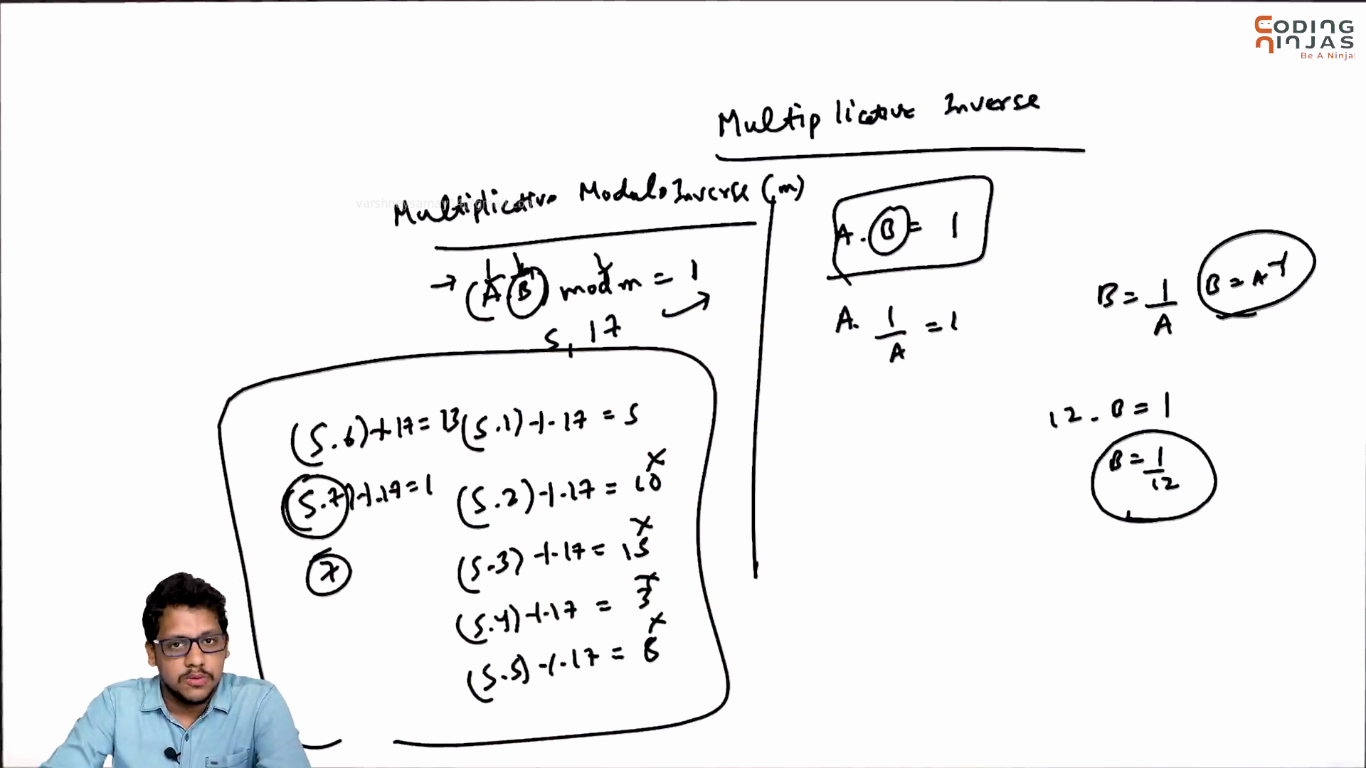 CODING
NINJAS
Be A Ninja
Multiplicative Inverse
Multiplicative Modulo Inverse (m)
(A B) mod m = 1
5, 17
(5.6) % 17 = 13
(5.7) % 17 = 1
7
(5.1) % 17 = 5
(5.2) % 17 = 10 x
(5.3) % 17 = 15 x
(5.4) % 17 = 3 x
(5.5) % 17 = 8 x
A . B = 1
A . 1/A = 1
B = 1/A
B = A⁻¹
12 . B = 1
B = 1/12